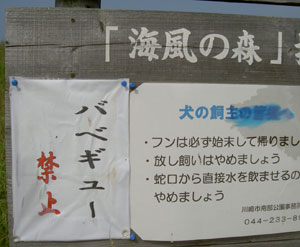 「海風の森」
バベギュー
禁上
犬の飼主の
・フンは必ず始末して帰りまし
・放し飼いはやめましょう
・蛇口から直接水を飲ませるの
やめましょう
川崎市南部公園事務所